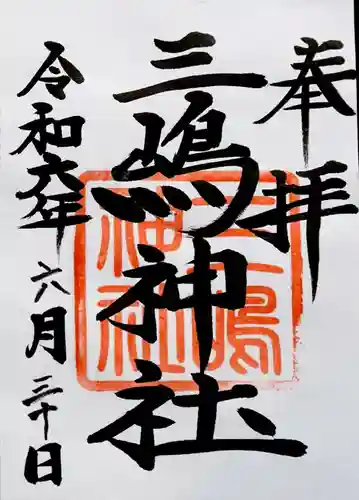 奉拝
三嶋神社
令和六年
六月三十日
三嶋
神社